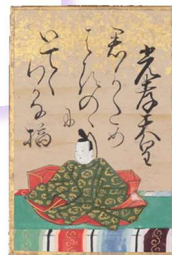 光孝天皇
君かため
はるのゝ
に
いてゝ
わかな摘